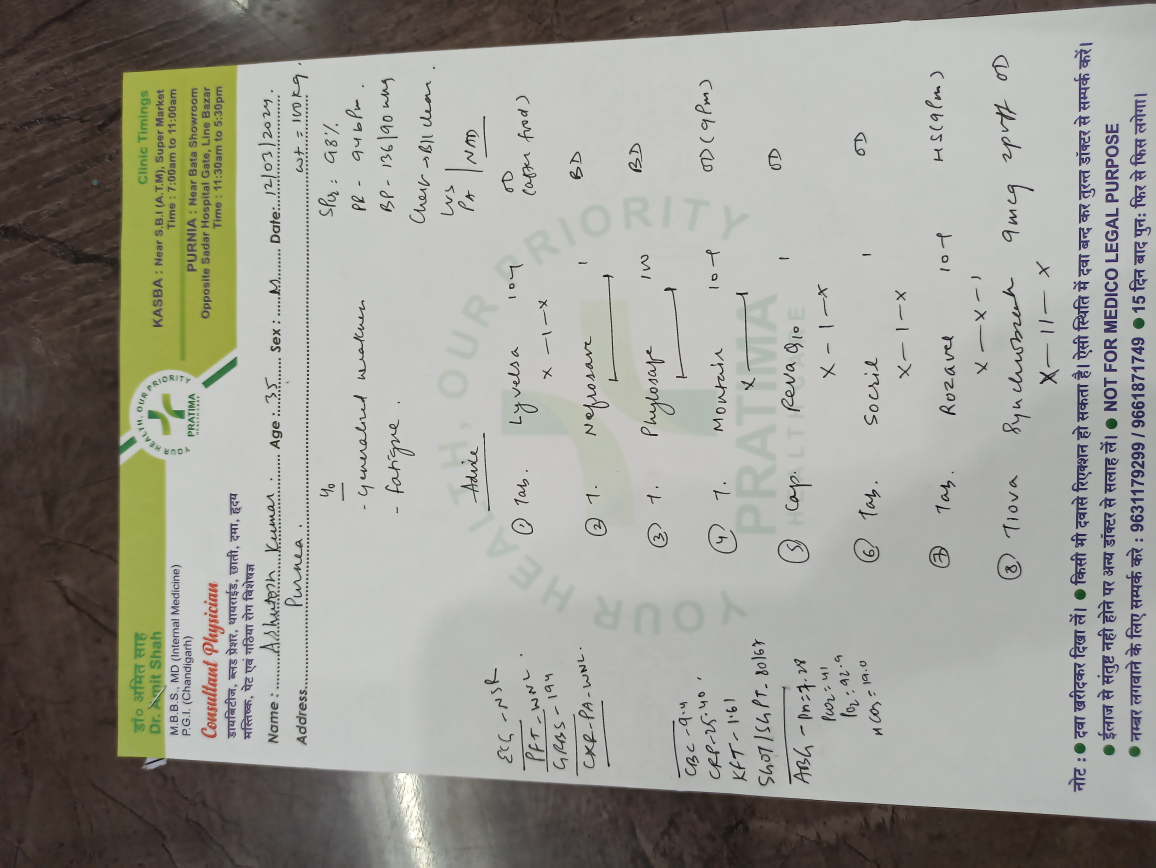 डॉ० अमित साह
Dr. Amit Shah
M.B.B.S., MD (Internal Medicine)
P.G.I. (Chandigarh)
Consultant Physician
डायबिटीज, ब्लड प्रेशर, थायराईड, छाती, दमा, हृदय
मस्तिष्क, पेट एवं गठिया रोग विशेषज्ञ
YOUR HEALTH, OUR PRIORITY
PRATIMA
HEALTHCARE
Clinic Timings
KASBA : Near S.B.I (A.T.M), Super Market
Time : 7:00am to 11:00am
PURNIA : Near Bata Showroom
Opposite Sadar Hospital Gate, Line Bazar
Time : 11:30am to 5:30pm
Name : Ashutosh Kumar. Age : 35 Sex : M Date: 12/03/2024.
Address Purnea. wt = 100 kg.
c/o
- Generalised weakness
- fatigue.
SPO2 : 98%
PR - 94 bpm.
BP - 136/90 mmHg
Chest → B/L clear.
CVS
PA | NAD
Advice
① Tab. Lyvelsa 10mg OD
x - 1 - x (after food)
② T. Nefrosave 1 BD
③ T. Phylosafe 100 BD
④ T. Montair 10mg OD (9 Pm)
x
⑤ Cap. Reva Q10 1 OD
x - 1 - x
⑥ Tab. Socril 1 OD
x - 1 - x
⑦ Tab. Rozavel 10mg HS (9 Pm)
x - x - 1
⑧ Tiova Synchrobreath 9mcg 2puff OD
x - 11 - x
ECG - NSR
PFT - WNL.
GRBS - 194
CXR-PA-WNL.
CBC - 9.4
CRP - 25.40.
KFT - 1.61
SGOT/SGPT - 80/67
ABG - PH = 7.28
PCO2 = 41
PO2 = 92.9
HCO3 = 19.0
YOUR HEALTH, OUR PRIORITY
PRATIMA
HEALTHCARE
नोट : ● दवा खरीदकर दिखा लें। ● किसी भी दवासे रिएक्शन हो सकता है। ऐसी स्थिति में दवा बन्द कर तुरन्त डॉक्टर से सम्पर्क करें।
● ईलाज से संतुष्ट नही होने पर अन्य डॉक्टर से सलाह लें। ● NOT FOR MEDICO LEGAL PURPOSE
● नम्बर लगवाने के लिए सम्पर्क करे : 9631179299 / 9661871749 ● 15 दिन बाद पुन: फिर से फिस लगेगा।